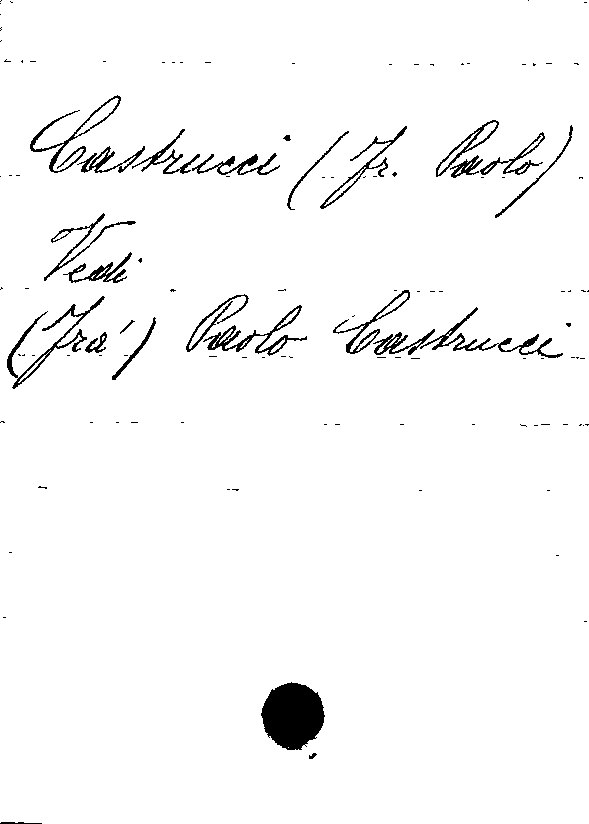 Castrucci (Fr. Paolo)
Vedi
(Frà) Paolo Castrucci